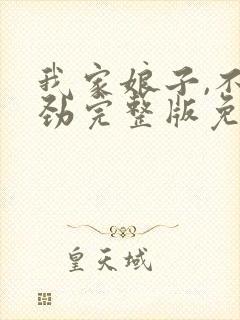 我家娘子,不
劲完整版免
皇天域